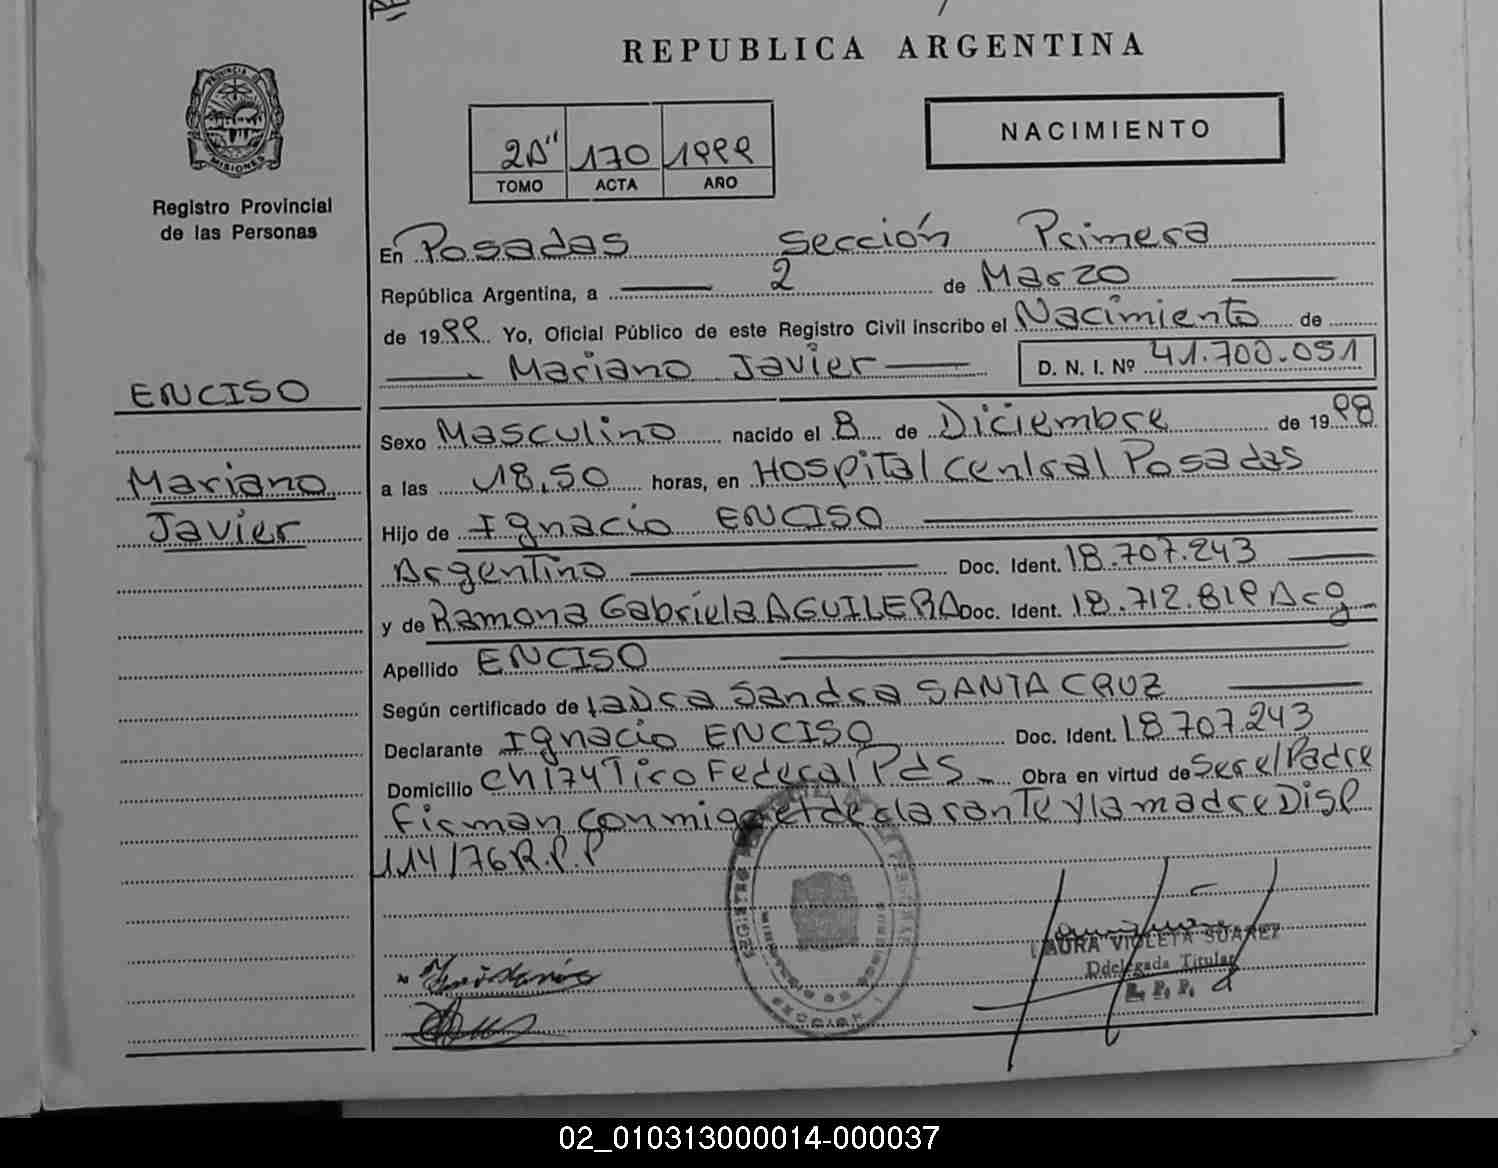 REPUBLICA ARGENTINA
PROVINCIA D
MISIONES
2A" 170 1999
TOMO ACTA AÑO
NACIMIENTO
Registro Provincial
de las Personas
En Posadas Sección Primera
República Argentina, a 2 de Marzo
de 1999 Yo, Oficial Público de este Registro Civil inscribo el Nacimiento de
Mariano Javier D. N. I. Nº 41.700.051
ENCISO
Sexo Masculino nacido el 8 de Diciembre de 1998
Mariano
a las 18,50 horas, en Hospital Central Posadas
Javier
Hijo de Ignacio ENCISO
Argentino Doc. Ident. 18.707.243
y de Ramona Gabriela AGUILERA Doc. Ident. 18.712.819 Arg
Apellido ENCISO
Según certificado de la Dra Sandra SANTA CRUZ
Declarante Ignacio ENCISO Doc. Ident. 18707.243
Domicilio Ch 174 Tiro Federal Pds Obra en virtud de Ser el Padre
Firman conmigo el declarante y la madre Disp
114/76 R.P.P
LAURA VIOLETA SUAREZ
Ddelegada Titular
R. P. P.
02_010313000014-000037